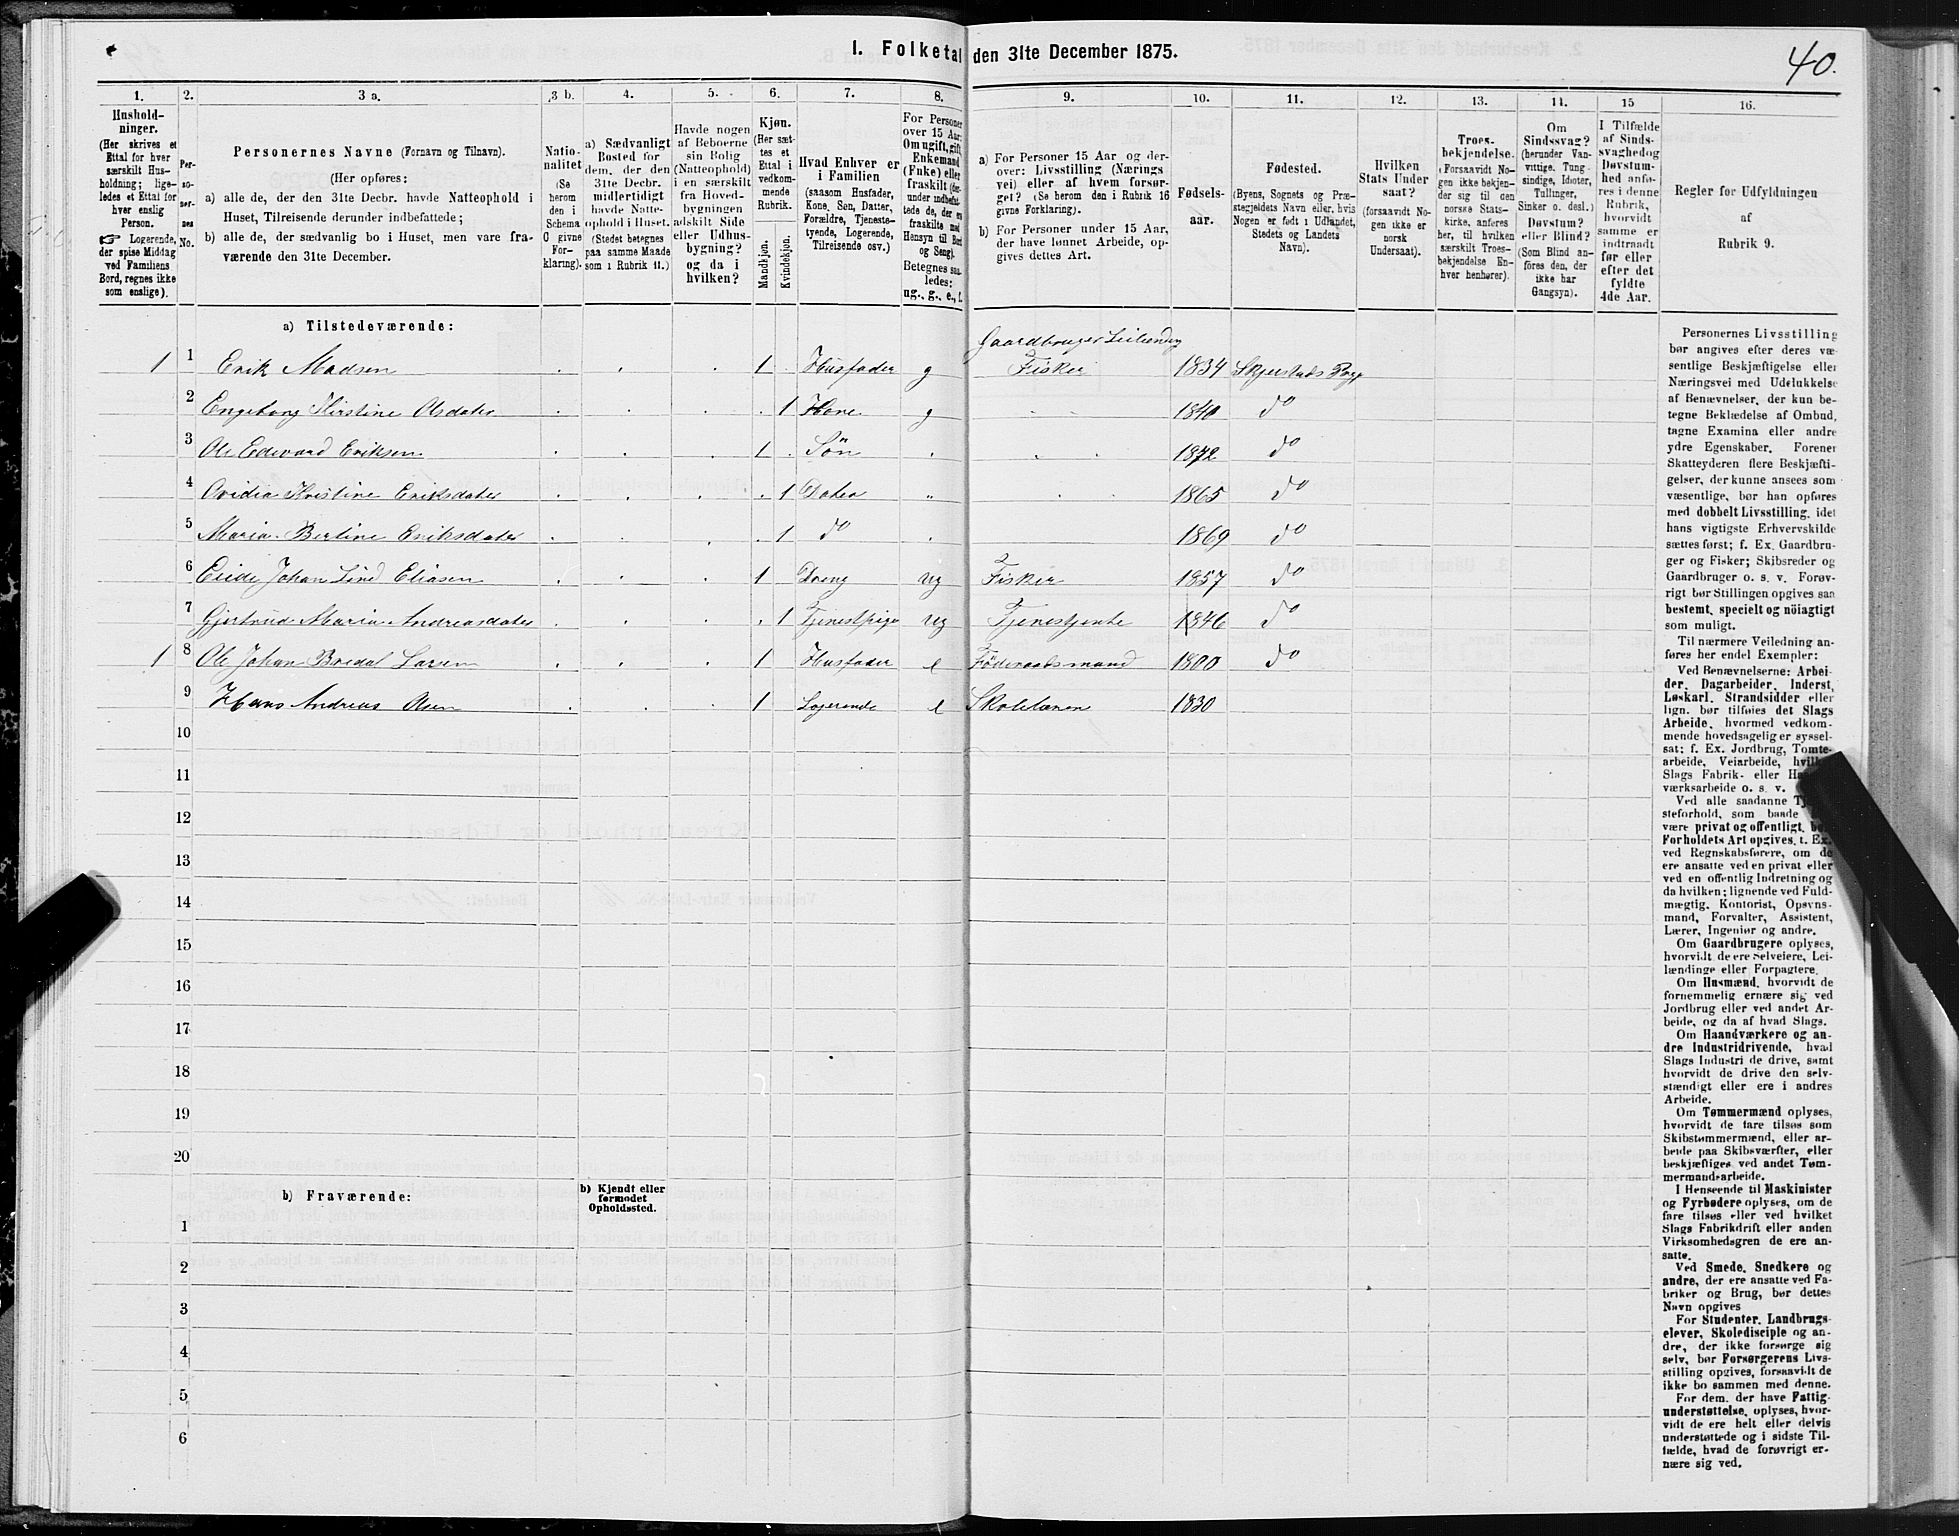 1. Folketal den 31te December 1875.
40.
1.
2.
3 a.
3 b.
4.
5.
6.
7.
8.
9.
10.
11.
12.
13.
14.
15
16.
Hushold-
ninger.
(Her skrives et
Ettal for hver
særskilt Hus-
holdning; lige-
ledes et Ettal for
hver enslig
Person.
☞ Logerende,
der spise Middag
ved Familiens
Bord, regnes ikke
som enslige).
Per-
so-
ner-
nes
No.
Personernes Navne (Fornavn og Tilnavn).
(Her opføres:
a) alle de, der den 31te Decbr. havde Natteophold i
Huset, Tilreisende derunder indbefattede;
b) alle de, der sædvanlig bo i Huset, men vare fra-
værende den 31te December.
Natio-
nalitet
(Se
herom
den i
Schema
C givne
For-
klaring).
a) Sædvanligt
Bosted for
dem, der den
31te Decbr.
midlertidigt
havde Natte-
ophold i Huset.
(Stedet betegnes
paa samme Maade
som i Rubrik 11.)
Havde nogen
af Beboerne
sin Bolig
(Natteophold)
i en særskilt
fra Hoved-
bygningen
adskilt Side
eller Udhus-
bygning?
og da i
hvilken?
Kjøn.
(Her sæt-
tes et
Ettal i
vedkom-
mende
Rubrik.
Mandkjøn.
Kvindekjøn.
Hvad Enhver er
i Familien
(saasom Husfader,
Kone, Søn, Datter,
Forældre, Tjeneste-
tyende, Logerende,
Tilreisende osv.)
For Personer
over 15 Aar:
Om ugift, gift,
Enkemand
(Enke) eller
fraskilt (der-
under indbefat-
tede de, der ere
fraskilte med
Hensyn til Bord
og Seng).
Betegnes saa-
ledes:
ug., g., e., f.
a) For Personer 15 Aar og der-
over: Livsstilling (Nærings
vei) eller af hvem forsør-
get? (Se herom den i Rubrik 16
givne Forklaring).
b) For Personer under 15 Aar,
der have lønnet Arbeide, op-
gives dettes Art.
Fødsels-
aar.
Fødested.
(Byens, Sognets og Præ-
stegjeldets Navn eller, hvis
Nogen er født i Udlandet,
Stedets og Landets
Navn).
Hvilken
Stats Under
saat?
(forsaavidt No-
gen ikke er
norsk
Undersaat).
Troes-
bekjendelse.
(Forsaavidt No-
gen ikke bekjen-
der sig til den
norske Stats-
kirke, anføres
her, til hvilken
særskilt Troes-
bekjendelse En-
hver henhører).
Om
Sindssvag?
(herunder Van-
vittige, Tung-
sindige, Idioter,
Tullinger,
Sinker o. desl.)
Døvstum?
eller Blind?
(Som Blind an-
føres den, der
ikke har
Gangsyn).
I Tilfælde
af Sinds-
svaghed og
Døvstum-
hed anfø-
res i denne
Rubrik,
hvorvidt
samme er
indtraadt
før eller
efter det
fyldte
4de Aar.
Regler for Udfyldningen
af
Rubrik 9.
a) Tilstedeværende:
Gaardbruger Leilending
1 1 Erik Madsen 1 Husfader g Fisker 1834 Skjerstads Pægj
2 Engeborg Kirstine Olsdater 1 Kone g 1840 do
3 Ole Edevard Eriksen 1 Søn 1872 do
4 Ovidia Kristine Eriksdater 1 Dater 1865 do
5 Maria Bertine Eriksdater 1 do 1869 do
6 Johan Lind Eliasen 1 Dreng ug Fisker 1857 do
7 Gjertrud Maria Andreasdater 1 Tjenestpige ug Tjenestjente 1846 do
1 8 Ole Johan Bredal Larsen 1 Husfader e Föderaadsmand 1800 do
9 Hans Andreas Olsen 1 Logerende e Skolelærer 1830
10
11
12
13
14
15
16
17
18
19
20
b) Fraværende:
b) Kjendt eller
formodet
Opholdssted.
1
2
3
4
5
6
Personernes Livsstilling
bør angives efter deres væ-
sentlige Beskjæftigelse eller
Næringsvei med Udelukkelse
af Benævnelser, der kun be-
tegne Beklædelse af Ombud,
tagne Examina eller andre
ydre Egenskaber. Forener
Skatteyderen flere Beskjæfti-
gelser, der kunne ansees som
væsentlige, bør han opføres
med dobbelt Livsstilling, idet
hans vigtigste Erhvervskilde
sættes først; f. Ex. Gaardbru-
ger og Fisker; Skibsreder og
Gaardbruger o. s. v. Forøv-
rigt bør Stillingen opgives saa
bestemt, specielt og nöiagtigt
som muligt.
Til nærmere Veiledning an-
føres her endel Exempler:
Ved Benævnelserne: Arbei-
der, Dagarbeider, Inderst,
Løskarl, Strandsidder eller
lign. bør tilføies det Slags
Arbeide, hvormed vedkom-
mende hovedsagelig er syssel-
sat; f. Ex. Jordbrug, Tomte-
arbeide, Veiarbeide,
Slags Fabrik- eller
værksarbeide o. s. v.
Ved alle saadanne
steforhold, som baade
være privat og offentligt,
Forholdets Art opgives, t. Ex.
ved Regnskabsførere, om de
ere ansatte ved en privat eller
ved en offentlig Indretning og
da hvilken; lignende ved Fuld-
mægtig, Kontorist, Opsyns-
mand, Forvalter, Assistent,
Lærer, Ingeniør og andre.
Om Gaardbrugere oplyses,
hvorvidt de ere Selveiere, Lei-
lændinge eller Forpagtere.
Om Husmænd, hvorvidt de
fornemmelig ernære sig ved
Jordbrug eller ved andet Ar-
beide, og da af hvad Slags.
Om Haandværkere og an-
dre Industridrivende, hvad
Slags Industri de drive, samt
hvorvidt de drive den selv-
stændigt eller ere i andres
Arbeide.
Om Tømmermænd oplyses,
hvorvidt de fare tilsøs som
Skibstømmermænd, eller ar-
beide paa Skibsværfter, eller
beskjæftiges ved andet Tøm-
mermandsarbeide.
I Henseende til Maskinister
og Fyrbødere oplyses, om de
fare tilsøs eller ved hvilket
Slags Fabrikdrift eller anden
Virksomhedsgren de ere an-
satte.
Ved Smede, Snedkere og
andre, der ere ansatte ved Fa-
briker og Brug, bør dettes
Navn opgives
For Studenter, Landbrugs-
elever, Skoledisciple og an-
dre, der ikke forsørge sig
selv, bør Forsørgerens Livs-
stilling opgives, forsaavidt de
ikke bo sammen med denne.
For dem, der have Fattig-
understøttelse, oplyses, hvor-
vidt de ere helt eller delvis
understøttede og i sidste Til-
fælde, hvad de forøvrigt er-
nære sig ved.